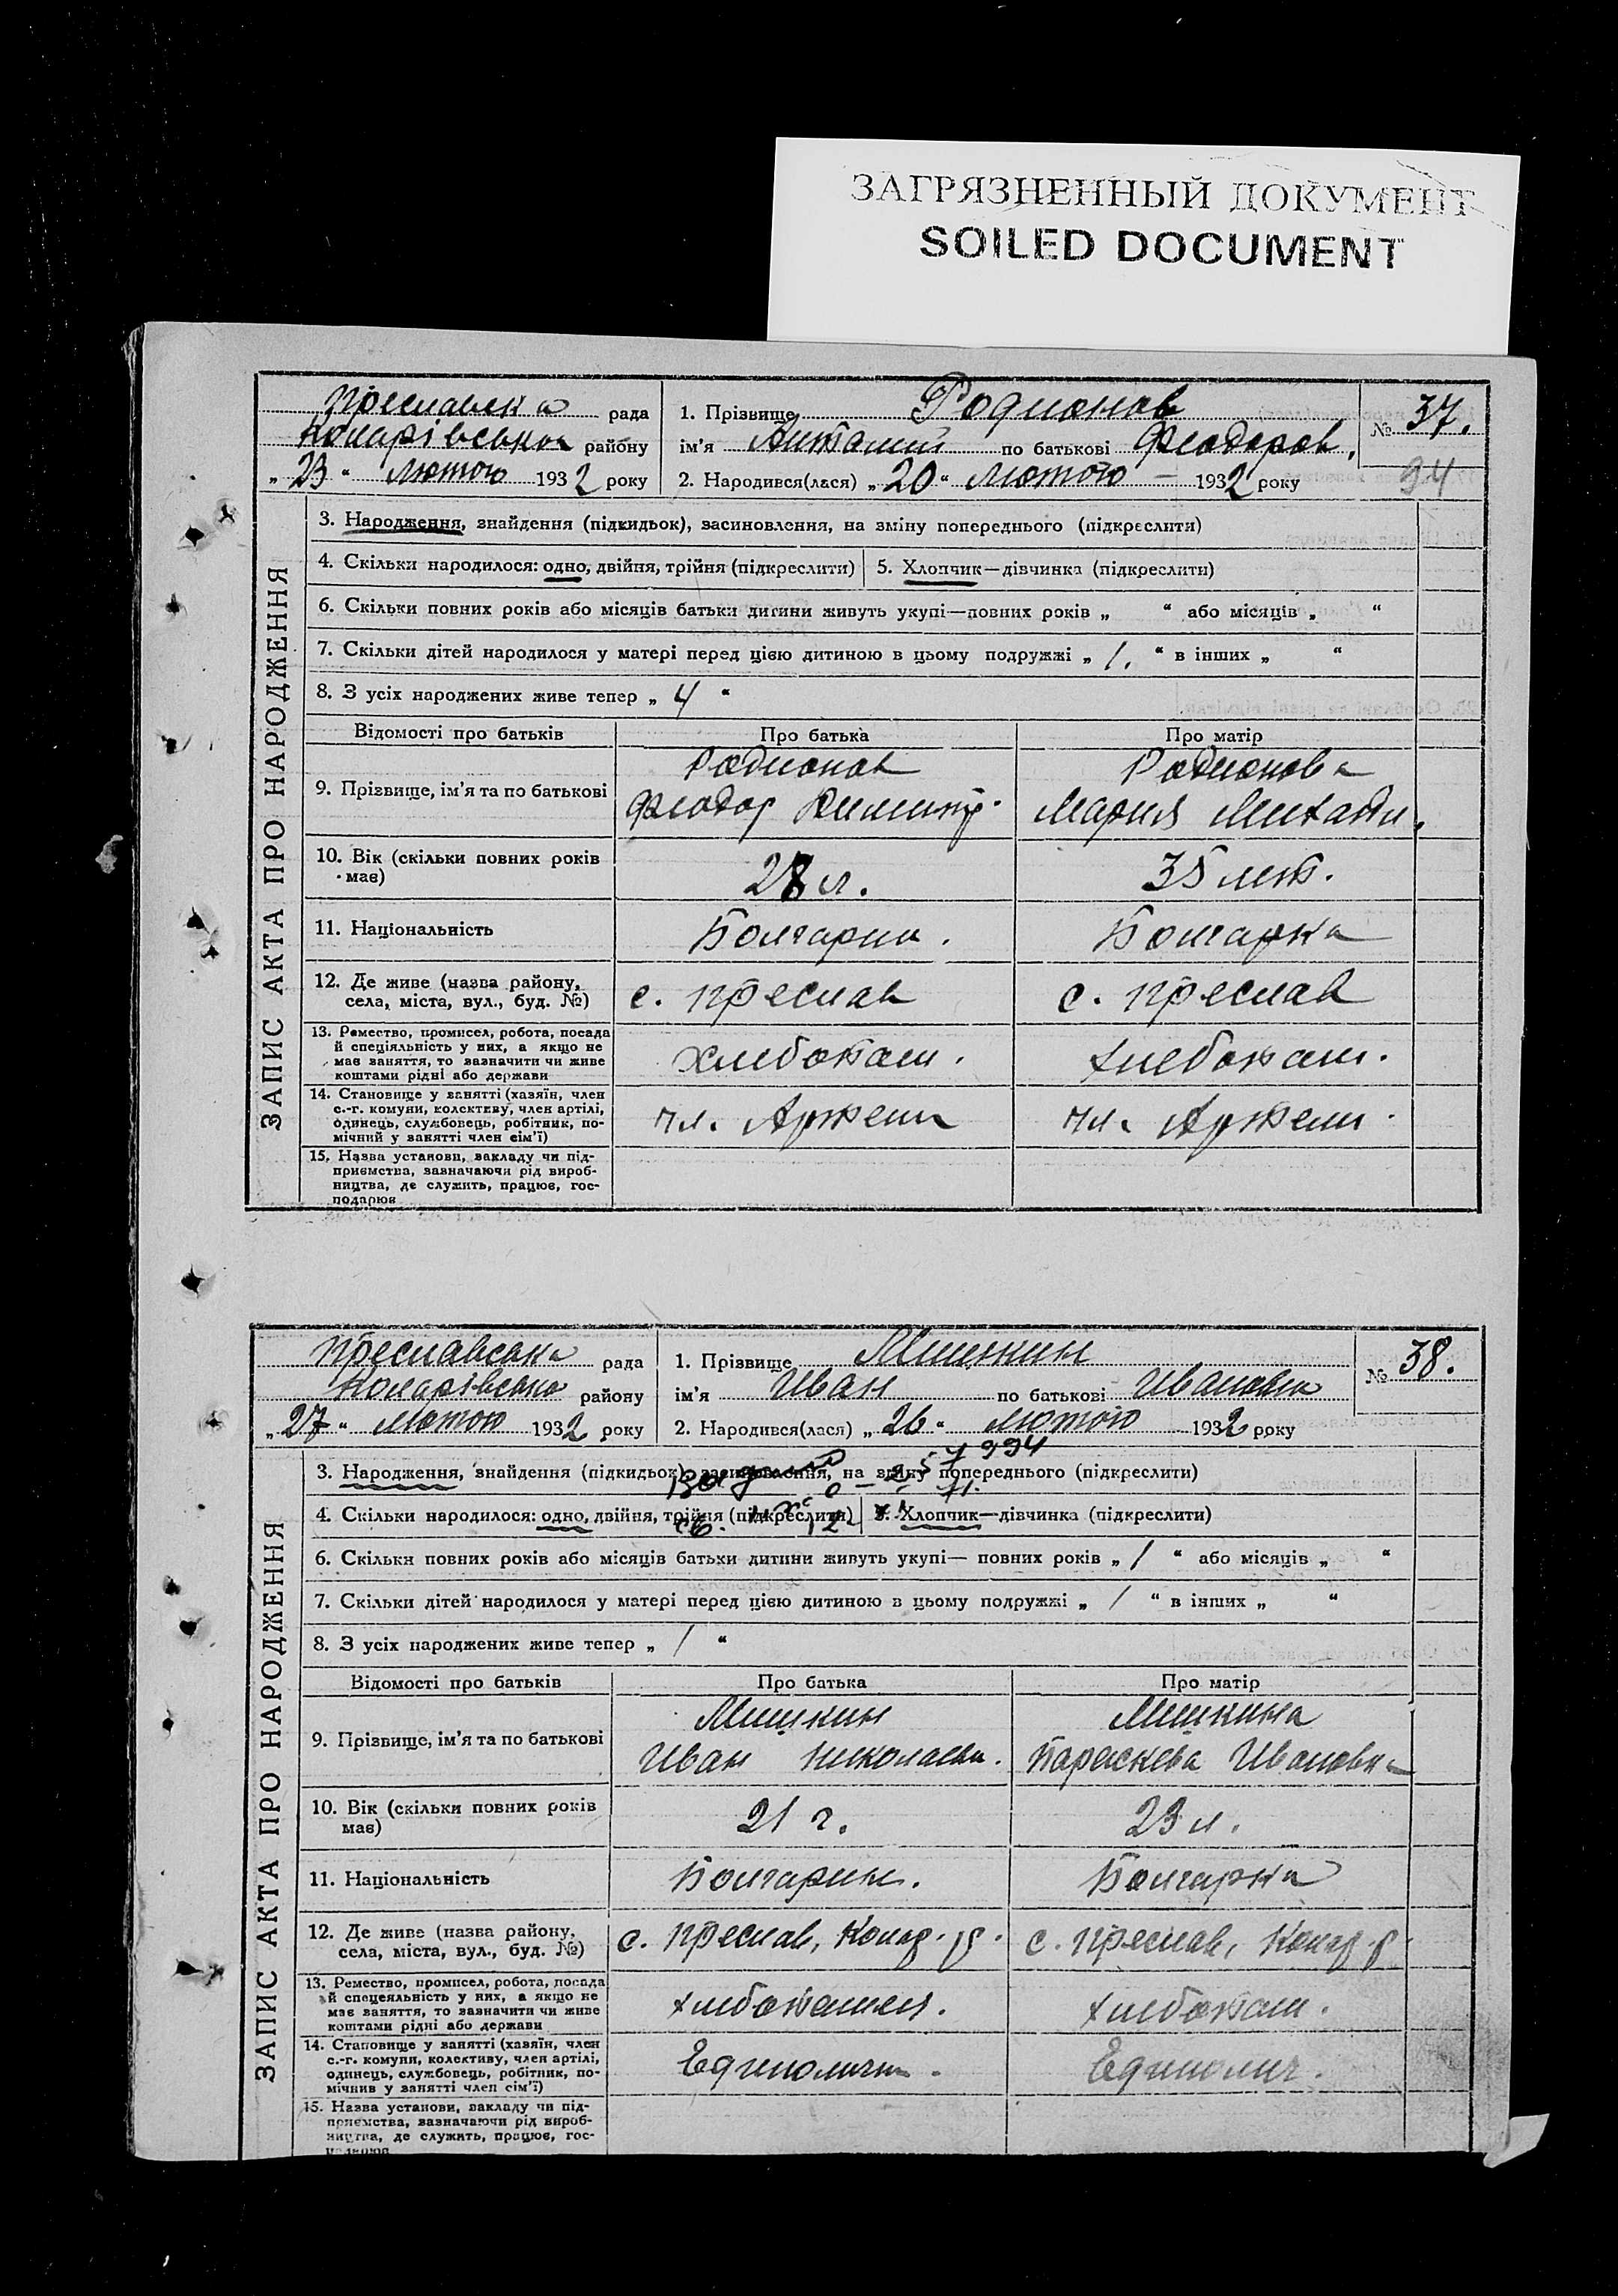 ЗАГРЯЗНЕННЫЙ ДОКУМЕНТ
SOILED DOCUMENT
ЗАПИС АКТА ПРО НАРОДЖЕННЯ
рада
району
„23“ Лютого 1932 року
1. Прізвище Родионов
ім'я по батькові Феодоров.
2. Народився(лася) „20“ Лютого – 1932 року
№ 37.
94
3. Народження, знайдення (підкидьок), засиновлення, на зміну попереднього (підкреслити)
4. Скільки народилося: одно, двійня, трійня (підкреслити)
5. Хлопчик—дівчинка (підкреслити)
6. Скільки повних років або місяців батьки дитини живуть укупі—повних років „ “ або місяців „ “
7. Скільки дітей народилося у матері перед цією дитиною в цьому подружжі „ 1. “ в інших „ “
8. З усіх народжених живе тепер „ 4 “
Відомості про батьків Про батька Про матір
9. Прізвище, ім'я та по батькові
Родионов
Феодор Димитр.
Родионова
Мария
10. Вік (скільки повних років має)
28 л.
35 лет.
11. Національність
Болгарин.
Болгарка
12. Де живе (назва району,
села, міста, вул., буд. №)
с. Преслав
с. Преслав
13. Ремество, промисел, робота, посада
й спеціяльність у них, а якщо не
має заняття, то зазначити чи живе
коштами рідні або держави
хлебопаш.
хлебопаш.
14. Становище у занятті (хазяїн, член
с.-г. комуни, колективу, член артілі,
одинець, службовець, робітник, по-
мічний у занятті член сім'ї)
чл. Артели
чл. Артели.
15. Назва установи, закладу чи під-
приємства, зазначаючи рід вироб-
ництва, де служить, працює, гос-
подарює
ЗАПИС АКТА ПРО НАРОДЖЕННЯ
Преславська рада
району
„27“ Лютого 1932 року
1. Прізвище Мишкин
ім'я Иван по батькові Иванович
2. Народився(лася) „26“ Лютого 1932 року
№ 38.
3. Народження, знайдення (підкидьок), засиновлення, на зміну попереднього (підкреслити)
4. Скільки народилося: одно, двійня, трійня (підкреслити)
5. Хлопчик—дівчинка (підкреслити)
6. Скільки повних років або місяців батьки дитини живуть укупі— повних років „ 1 “ або місяців „ “
7. Скільки дітей народилося у матері перед цією дитиною в цьому подружжі „ 1 “ в інших „ “
8. З усіх народжених живе тепер „ 1 “
Відомості про батьків Про батька Про матір
9. Прізвище, ім'я та по батькові
Мишкин
Иван Николаевич.
Мишкина
Параскева Ивановна
10. Вік (скільки повних років
має)
21 г.
23 л.
11. Національність
Болгарин.
Болгарка
12. Де живе (назва району,
села, міста, вул., буд. №)
с. Преслав,
с. Преслав,
13. Ремество, промисел, робота, посада
й спецеяльність у них, а якщо не
має заняття, то зазначити чи живе
коштами рідні або держави
хлебопаш.
14. Становище у занятті (хазяїн, член
с.-г. комуни, колективу, член артілі,
одинець, службовець, робітник, по-
мічнив у занятті член сім'ї)
Единоличн.
Единолич.
15. Назва установи, закладу чи під-
приємства, зазначаючи рід вироб-
ництва, де служить, працює, гос-